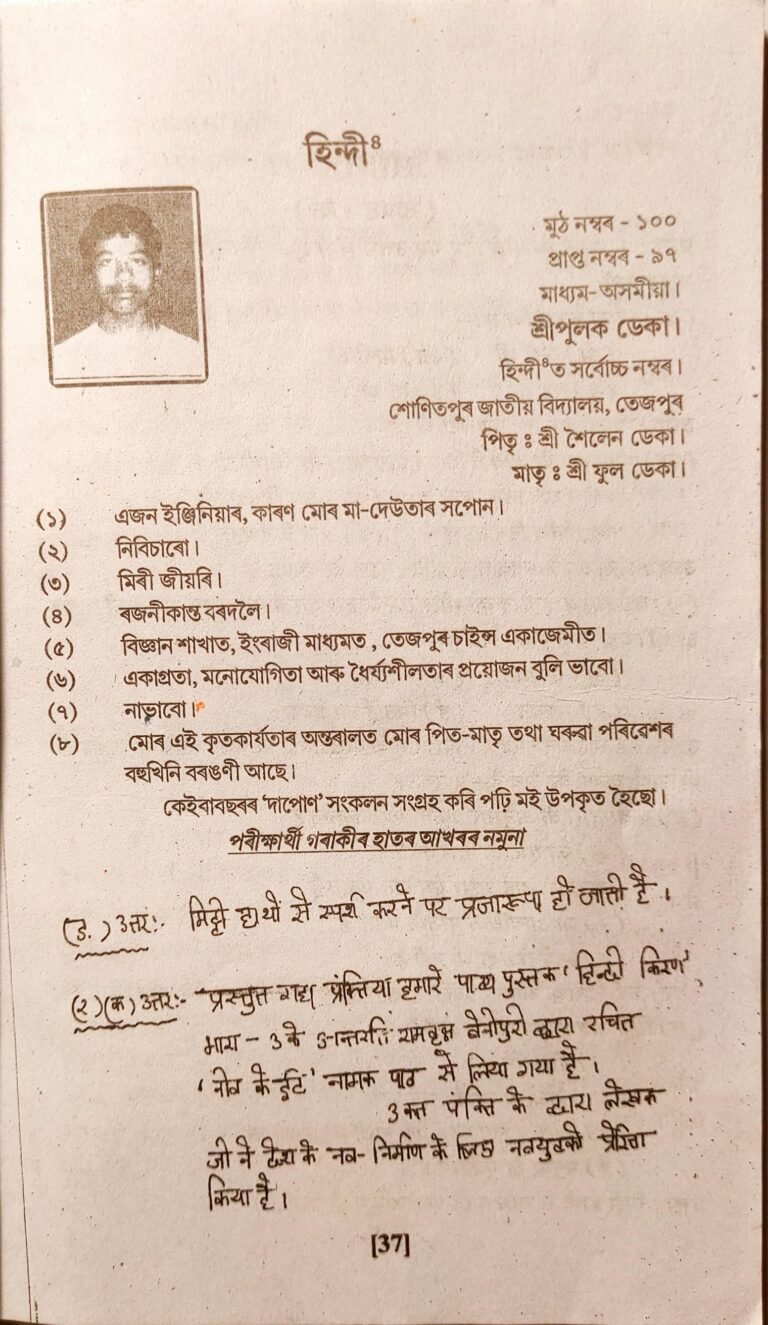 হিন্দী⁸
মুঠ নম্বৰ - ১০০
প্ৰাপ্ত নম্বৰ - ৯৭
মাধ্যম- অসমীয়া।
শ্ৰীপুলক ডেকা।
হিন্দী⁸ত সৰ্বোচ্চ নম্বৰ।
শোণিতপুৰ জাতীয় বিদ্যালয়, তেজপুৰ
পিতৃ ঃ শ্ৰী শৈলেন ডেকা।
মাতৃ ঃ শ্ৰী ফুল ডেকা।
(১) এজন ইঞ্জিনিয়াৰ, কাৰণ মোৰ মা-দেউতাৰ সপোন।
(২) নিবিচাৰো।
(৩) মিৰী জীয়ৰি।
(৪) ৰজনীকান্ত বৰদলৈ।
(৫) বিজ্ঞান শাখাত, ইংৰাজী মাধ্যমত , তেজপুৰ চাইন্স একাজেমীত।
(৬) একাগ্ৰতা, মনোযোগিতা আৰু ধৈৰ্য্যশীলতাৰ প্ৰয়োজন বুলি ভাবো।
(৭) নাভাবো।
(৮) মোৰ এই কৃতকাৰ্যতাৰ অন্তৰালত মোৰ পিত-মাতৃ তথা ঘৰুৱা পৰিৱেশৰ
বহুখিনি বৰঙণী আছে।
কেইবাবছৰৰ 'দাপোণ' সংকলন সংগ্ৰহ কৰি পঢ়ি মই উপকৃত হৈছো।
পৰীক্ষাৰ্থী গৰাকীৰ হাতৰ আখৰৰ নমুনা
(ड.) उत्तर:- मिट्टी हाथों से स्पर्श करने पर प्रजारूपा हो जाती है ।
(२)(क) उत्तर:- प्रस्तुत गद्य पंक्तिया हमारे पाठ्य पुस्तक 'हिन्दी किरण'
भाग - 3 के अन्तर्गत रामवृक्ष बेनीपुरी द्वारा रचित
'नींव के ईंट' नामक पाठ से लिया गया है ।
उक्त पंक्ति के द्वारा लेखक
जी ने देश के नव-निर्माण के लिए नवयुवको प्रेरित
किया है ।
[37]